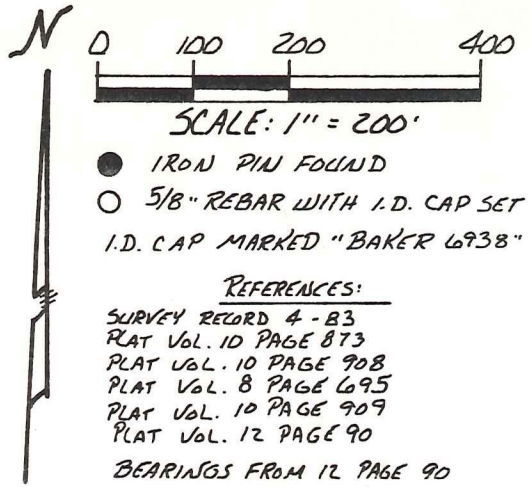 N
0 100 200 400
SCALE: 1" = 200'
IRON PIN FOUND
5/8" REBAR WITH I.D. CAP SET
I.D. CAP MARKED "BAKER 6938"
REFERENCES:
SURVEY RECORD 4-83
PLAT VOL. 10 PAGE 873
PLAT VOL. 10 PAGE 908
PLAT VOL. 8 PAGE 695
PLAT VOL. 10 PAGE 909
PLAT VOL. 12 PAGE 90
BEARINGS FROM 12 PAGE 90